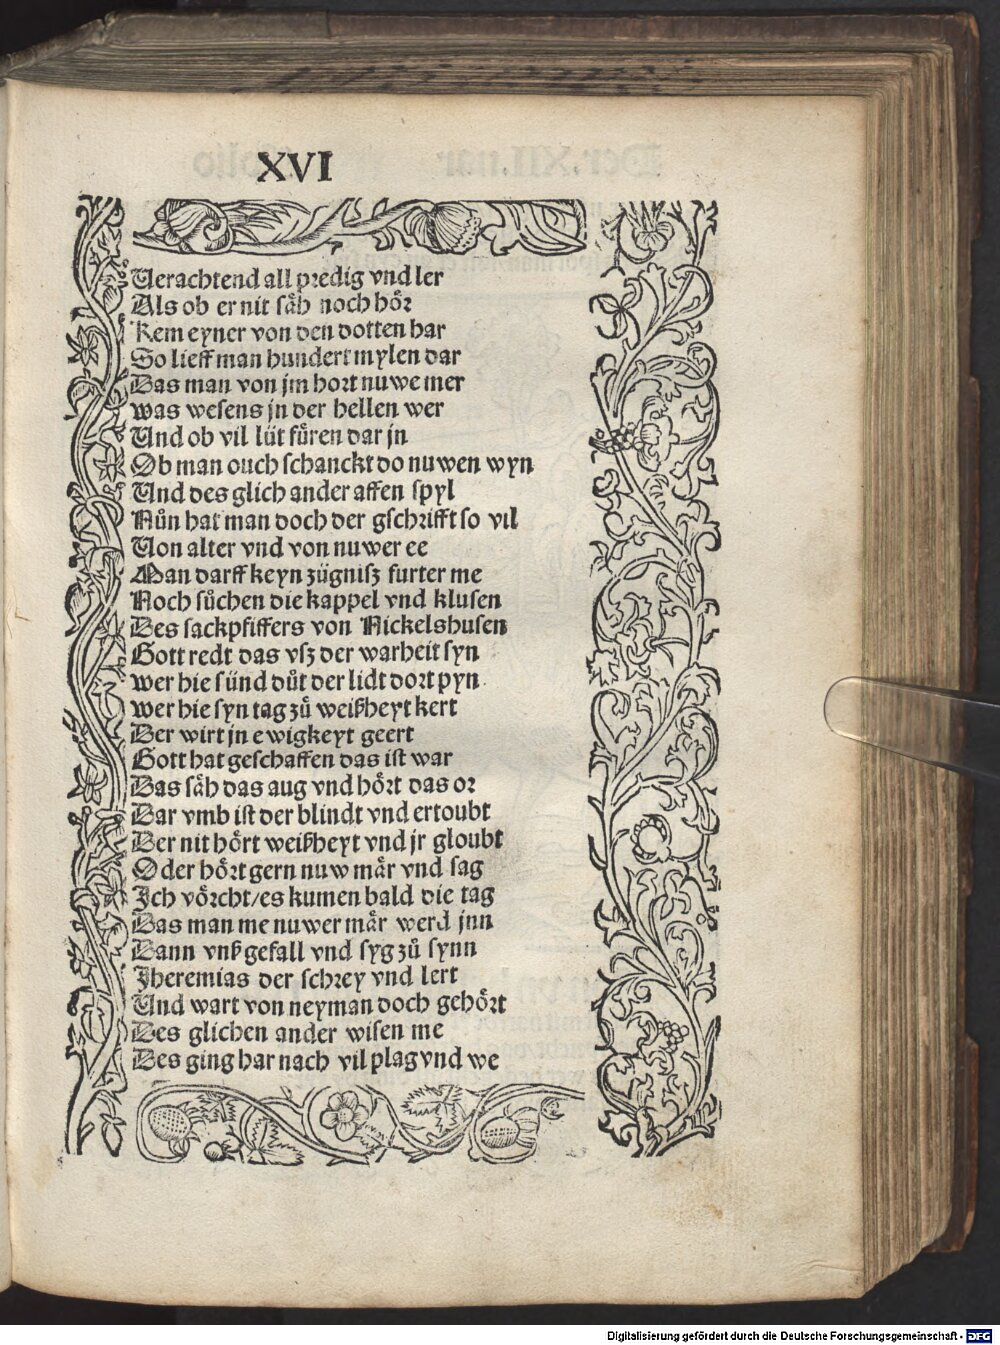 XVI
Uerachtend all predig vnd ler
Als ob er nit säh noch hör
Kem eyner von den dotten har
So lieff man hundert mylen dar
Das man von jm hort nuwe mer
was wesens jn der hellen wer
Und ob vil lüt fůren dar jn
Ob man ouch schanckt do nuwen wyn
Und des glich ander affen spyl
Nůn hat man doch der gschrifft so vil
Uon alter vnd von nuwer ee
Man darff keyn zügnisz furter me
Noch sůchen die kappel vnd klusen
Des sackpfiffers von Nickelshusen
Gott redt das vsz der warheit syn
wer hie sünd důt der lidt dort pyn
wer hie syn tag zů weißheyt kert
Der wirt jn ewigkeyt geert
Gott hat geschaffen das ist war
Das säh das aug vnd hört das or
Dar vmb ist der blindt vnd ertoubt
Der nit hört weißheyt vnd jr gloubt
Oder hört gern nuw mär vnd sag
Jch vörcht/es kumen bald die tag
Das man me nuwer mär werd jnn
Dann vnß gefall vnd syg zů synn
Jheremias der schrey vnd lert
Und wart von neyman doch gehört
Des glichen ander wisen me
Des ging har nach vil plag vnd we
Digitalisierung gefördert durch die Deutsche Forschungsgemeinschaft - DFG